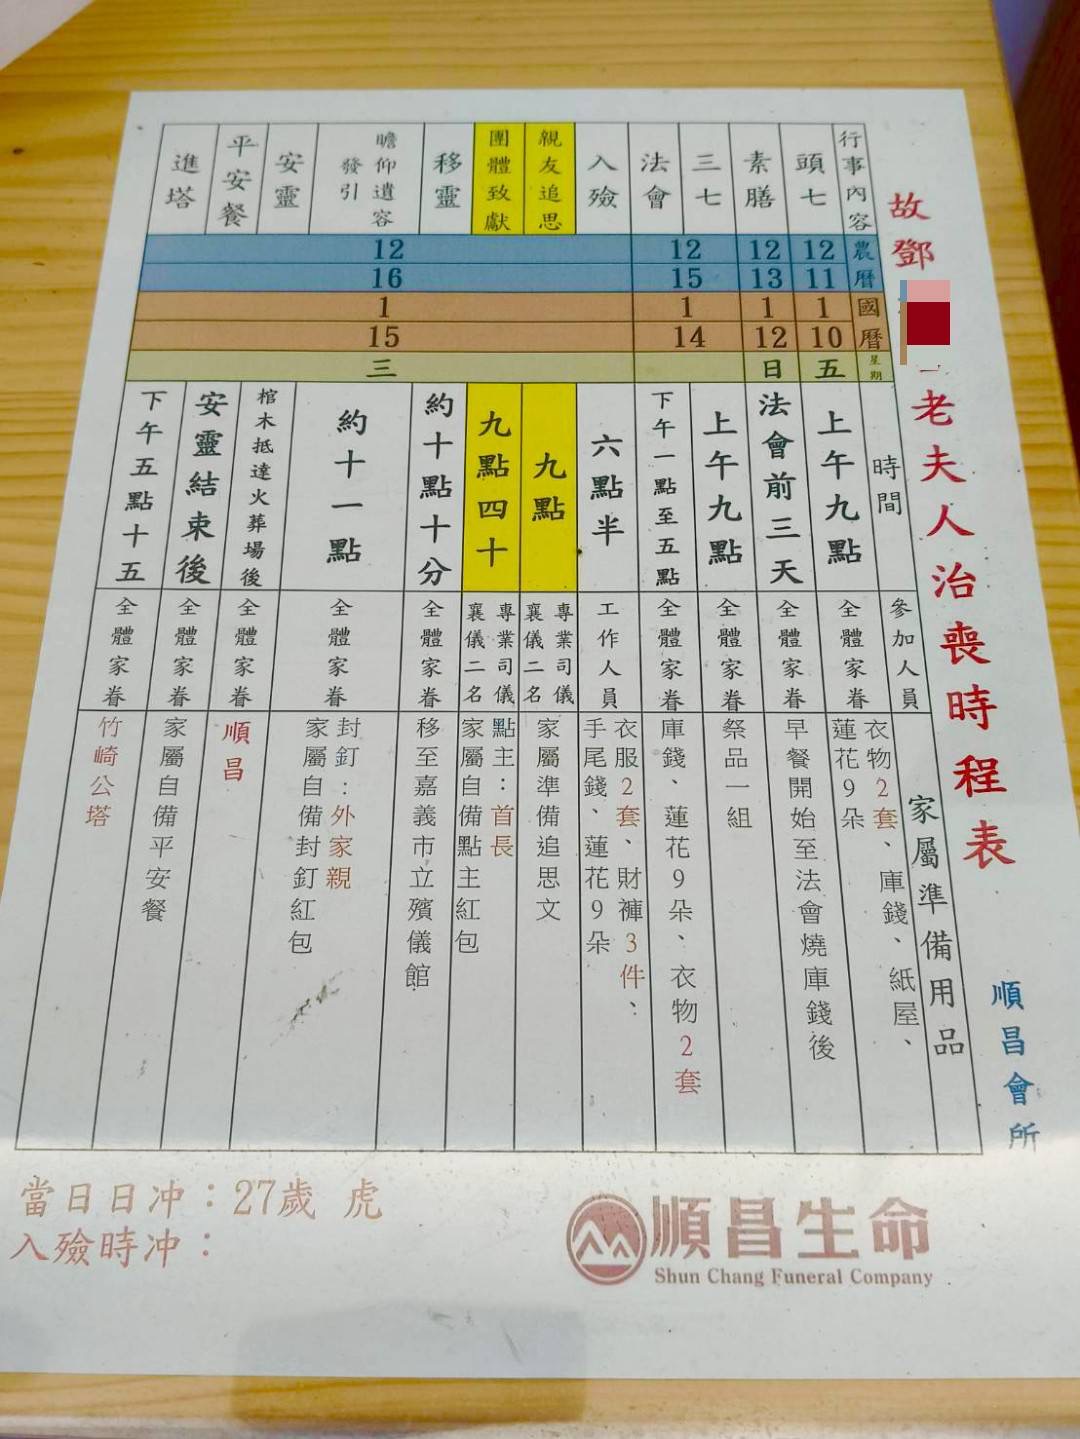 故鄧
老夫人治喪時程表
順昌會所
行事內容
農曆
國曆
星期
時間
參加人員
家屬準備用品
頭七
12
11
1
10
五
上午九點
全體家眷
衣物2套、庫錢、紙屋、
蓮花9朵
素膳
12
13
1
12
日
法會前三天
全體家眷
早餐開始至法會燒庫錢後
三七
12
15
1
14
上午九點
全體家眷
祭品一組
法會
下午一點至五點
全體家眷
庫錢、蓮花9朵、衣物2套
入殮
12
16
1
15
三
六點半
工作人員
衣服2套、財褲3件、
手尾錢、蓮花9朵
親友追思
九點
專業司儀
襄儀二名
家屬準備追思文
團體致獻
九點四十
專業司儀
襄儀二名
點主：首長
家屬自備點主紅包
移靈
約十點十分
全體家眷
移至嘉義市立殯儀館
瞻仰遺容
發引
約十一點
全體家眷
封釘：外家親
家屬自備封釘紅包
安靈
棺木抵達火葬場後
全體家眷
順昌
平安餐
安靈結束後
全體家眷
家屬自備平安餐
進塔
下午五點十五
全體家眷
竹崎公塔
當日日冲：27歲 虎
入殮時冲：
順昌生命
Shun Chang Funeral Company